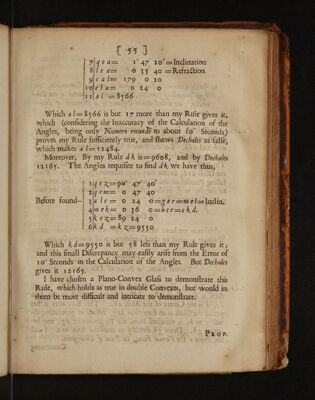 [ 55 ]
7 q e a = 1° 47′ 20″ = Inclination
8 l e a = 0 35 40 = Refraction
9 e a l = 179 0 20
10 e l a = 0 24 0
11 a l = 8566
Which a l = 8566 is but 17 more than my Rule gives it,
which (considering the Inaccuracy of the Calculation of the
Angles, being only Numero rotundo to about 10 Seconds)
proves my Rule sufficiently true, and shews Dechales as false,
which makes a l = 12484.
Moreover, By my Rule d k is = 9608, and by Dechales
12165. The Angles requisite to find d k we have thus,
1 q e z = 90° 47′ 40″
2 q e m = 0 47 40
Before found— 3 a l e = 0 24 0 = g e r = m e l = Inclin.
4 m e k = 0 36 0 = h e r = e k d.
5 k e z = 89 24 0
6 k d = k z = 9550
Which k d = 9550 is but 58 less than my Rule gives it;
and this small Discrepancy may easily arise from the Error of
10 Seconds in the Calculation of the Angles. But Dechales
gives it 12165.
I have chosen a Plano-Convex Glass to demonstrate this
Rule, which holds as true in double Convexes, but would in
them be more difficult and intricate to demonstrate.
PROP.